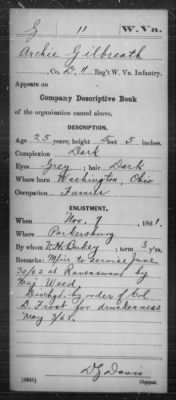 G 11 W. Va.
Archie Gilbreath
, Co. D, 11 Reg't W. Va. Infantry.
Appears on
Company Descriptive Book
of the organization named above.
DESCRIPTION.
Age 25 years; height 5 feet 5 inches.
Complexion Dark
Eyes Grey; hair Dark
Where born Washington, Ohio
Occupation Farmer
ENLISTMENT.
When Nov. 9, 1861.
Where Parkersburg
By whom; term 3 y'rs.
Remarks: M/in to service June
20/62 at Ravenswood by
Maj. Weed.
Dischgd. by order of Col.
D. Frost for drunkenness
May 7/62.
D Z Davis
Copyist.